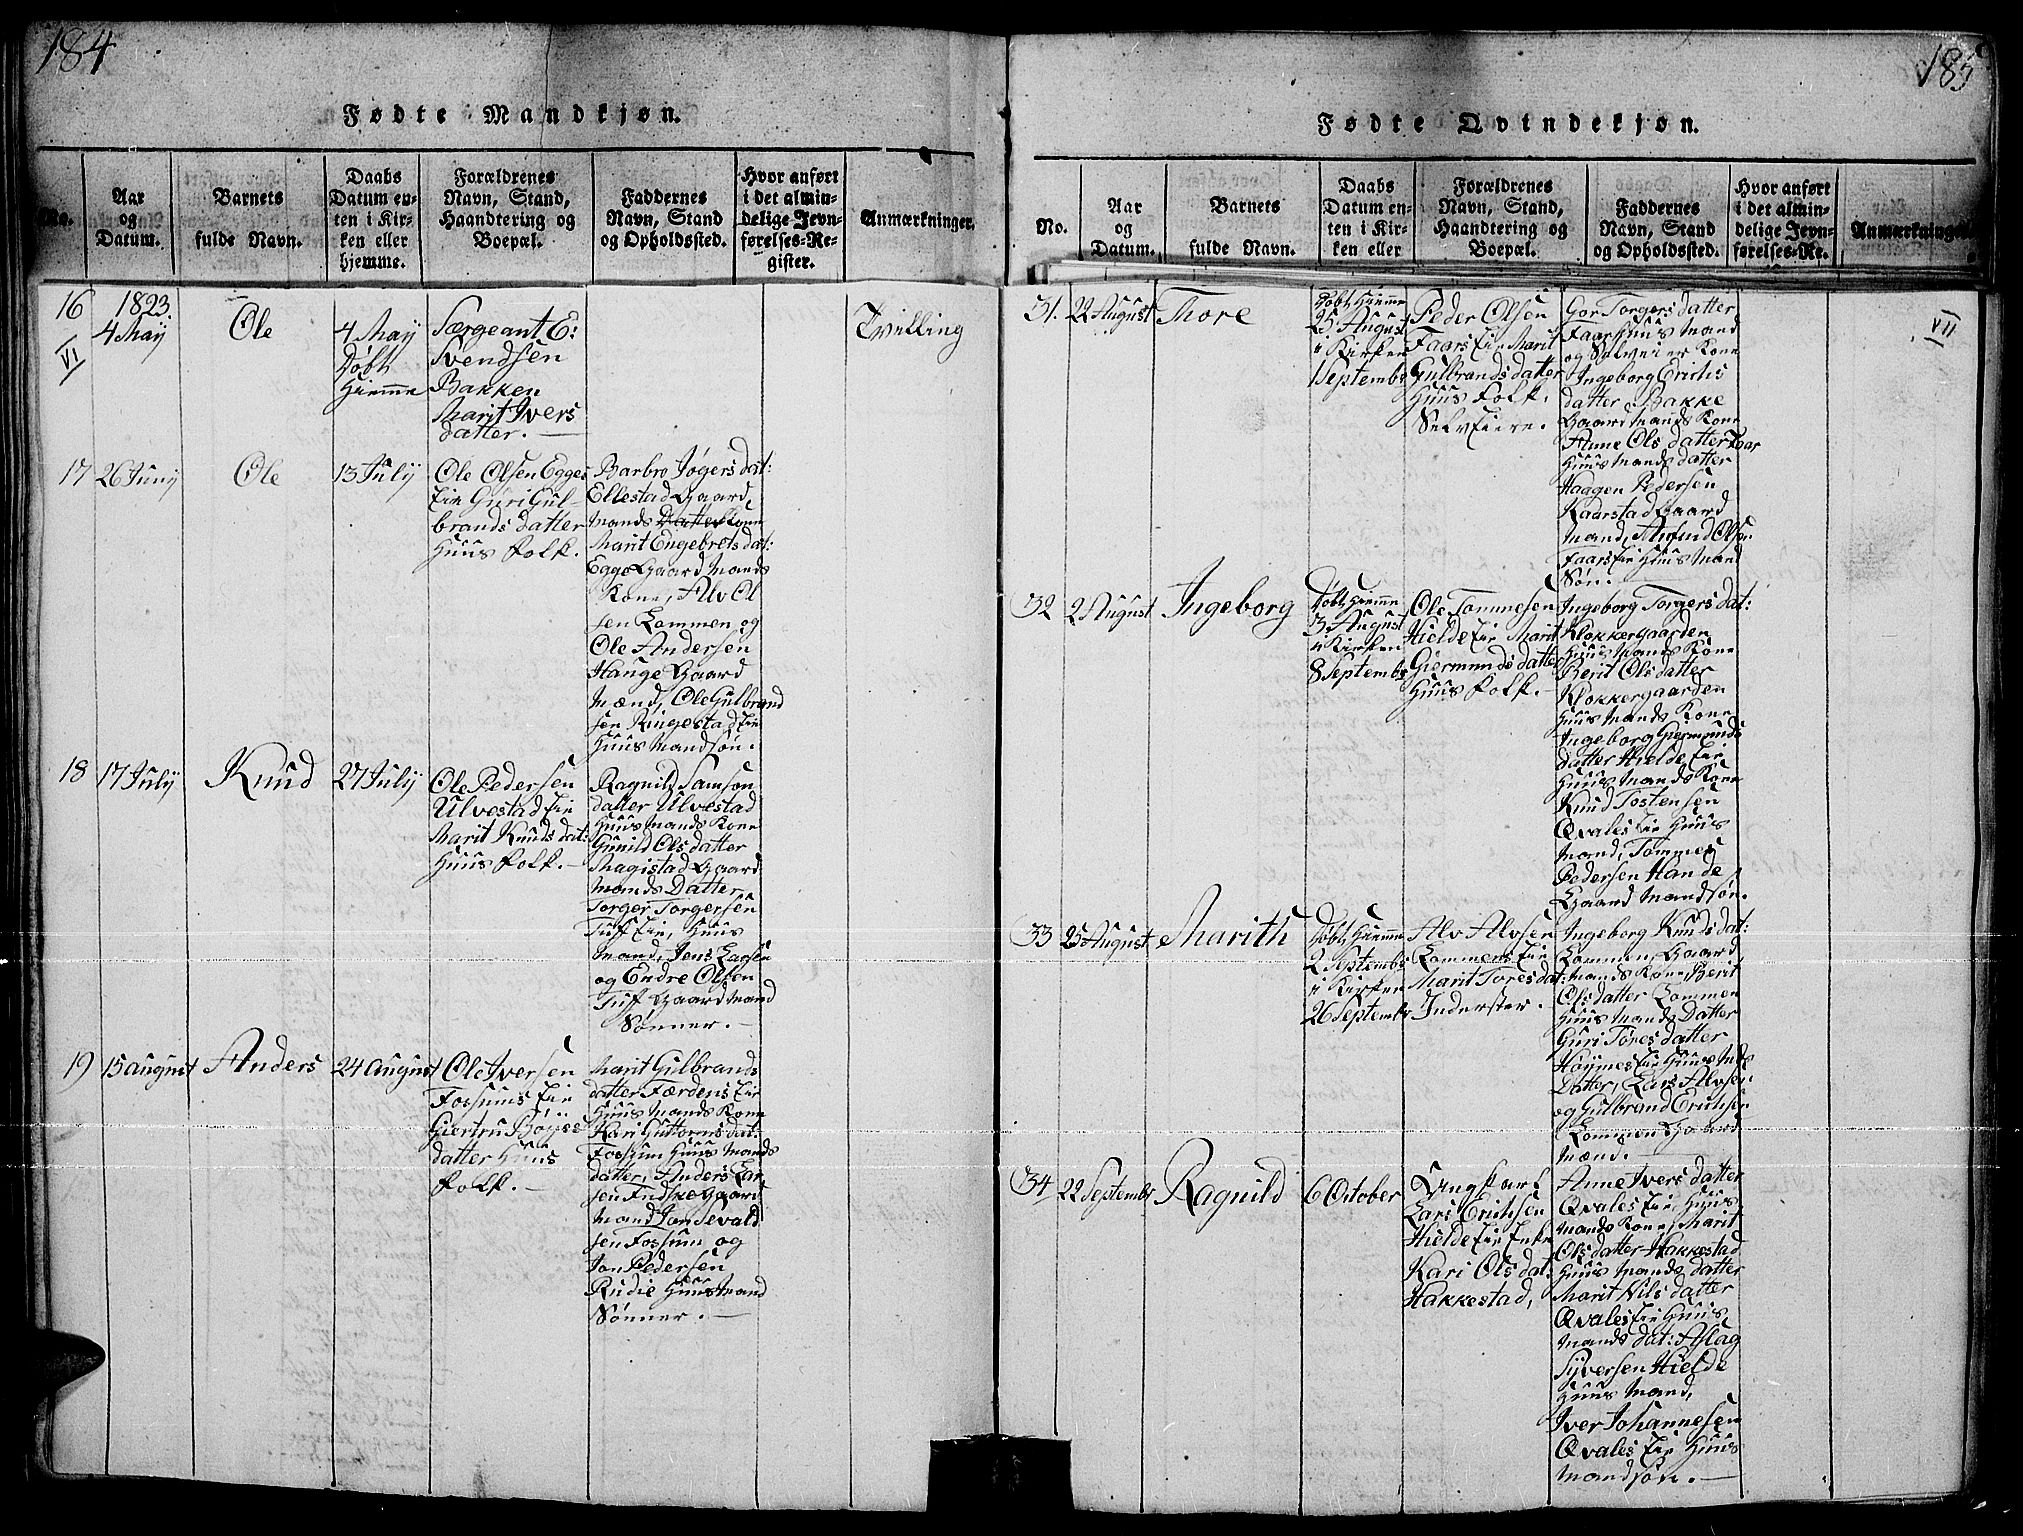 184
Fødte Mandkjøn.
No.
Aar
og
Datum.
Barnets
fulde Navn.
Daabs
Datum en-
ten i Kir-
ken eller
hjemme.
Forældrenes
Navn, Stand,
Haandtering og
Boepæl.
Faddernes
Navn, Stand
og Opholdssted.
Hvor anført
i det almin-
delige Jevn-
førelses-Re-
gister.
Anmærkninger.
16
VI
1823.
4 May
Ole
4 May
Døbt
Hiemme
Særgeant E:
Svendsen
Bakken
Marit Ivers
datter. —
Tvilling
17
26 Juny
Ole
13 July
Ole Olsen Egges
Eie Guri Gul
brands datter
Huus Folk.
Barbro Jøgers dat:
Ellestad Gaard
Mands Datter Kone
Marit Engebrets dat:
Egge Gaard Mands
Kone, Alv Ol
sen Lommen og
Ole Andersen
Hange Gaard
Mænd, Ole Gulbrand
sen Ringestad Eie
Huus Mandsøn.
18
17 July
Knud
27 July
Ole Pedersen
Ulvestad Eie
Marit Knuds dat:
Huus Folk. —
Ragnild Samson
datter Ulvestad
Huus Mands Kone
Gunild Ols datter
Magistad Gaard
Mands Datter,
Torger Torgersen
Tuff Eie, Huus
Mand, Jens Larsen
og Endre Olsen
Tuff Gaard Mand
Sønner. —
19
15 august
Anders
24 august
Ole Iversen
Fossums Eie
Giertru Bøyse
datter Huus
Folk. —
Marit Gulbrands
datter Færdens Eie
Huus Mands Kone
Kari Guttorms dat:
Fossum Huus Mands
datter, Anders Lar
sen Gaard
Mand Jon Sevald
sen Fossum og
Jon Pedersen
Rudie Huus Mand
Sønner. —
185
Fødte Qvindekjøn.
No.
Aar
og
Datum.
Barnets
fulde Navn.
Daabs
Datum en-
ten i Kir-
ken eller
Forældrenes
Navn, Stand,
Haandtering og
Boepæl.
Faddernes
Navn, Stand
og Opholdssted.
Hvor anført
i det almin-
delige Jevn-
førelses-Re-
Anmærkninger.
VII
31.
22 August
Thore
Døbt Hieme
25 August
i Kirken
1 Septembr
Peder Olsen
Faars Eie Marit
Gulbrands datter
Huus Folk.
Selv Eiere.
Gor Torgers datter
Faar Huus Mand
og Selveier Kone
Ingeborg Erichs
datter Bakke
Gaard Mands Kone
Anne Ols datter Faar
Huus Mands datter
Haagen Pedersen
Kaarstad Gaard
Mand, Amund Olsen
Faars Eie Huus Mand
Søn. —
32
2 August
Ingeborg
Døbt Hiemme
3 August
i Kirken
8 Septembr
Ole Tommesen
Hielde Eie Marit
Giermunds datter
Huus Folk. —
Ingeborg Torgers dat:
Klokkergaarden
Huus Mands Kone
Berit Ols datter
Klokkergaarden
Huus Mands Kone
Ingeborg Giermunds
datter Hielde Eie
Huus Mands Kone
Knud Tostensen
Qvales Eie Huus
Mand, Tommes
Pedersen Hande
Gaard Mandsøn.
33
25 August
Marith
Døbt Hiemme
2 Septembr
i Kirken
26 Septembr
Alv Alvsen
Lommens Eie
Marit Tores dat:
Inderster.
Ingeborg Knuds dat:
Lommen, Gaard
Mands Kone, Berit
Ols datter Lommen
Huus Mands Datter
Guri Tøres datter
Høymes Eie Huus Mds
Datter, Lars Alvsen
og Gulbrand Erichsen
Lommen Gaard
Mænd. —
34
22 Septembr
Ragnild
6 October
Ungkarl
Lars Erichsen
Hielde Eie Enke
Kari Ols dat:
Hakkestad,
Anne Ivers datter
Qvales Eie Huus
Mands Kone, Marit
Ols datter Hakkestad
Huus Mands datter
Marit Nils datter
Qvales Eie Huus
Mands dat: Aslag
Syversen Hielde
Huus Mand,
Iver Johannesen
Qvales Eie Huus
Mandsøn. —